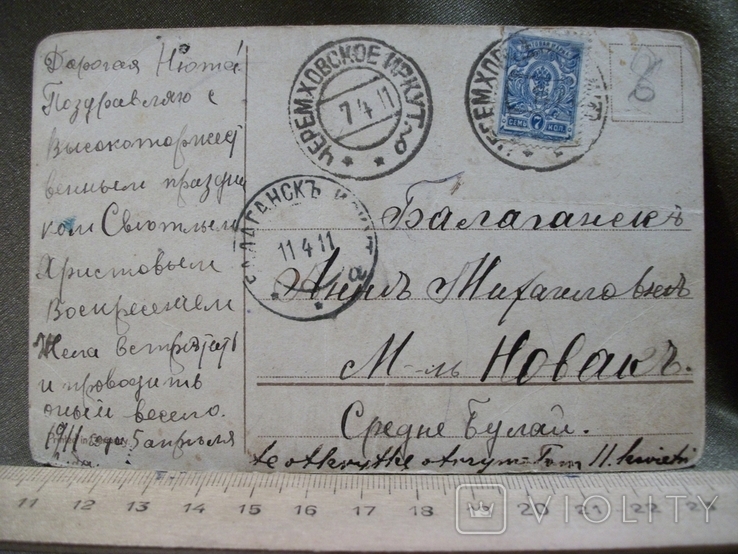 Дарогая Нюта!
Поздравляю с
Высокоторжест
венным праздни
ком Светлым
Христовым
Воскресением
Жела встречать
и проводить
оный весело.
1911 года 5 апреля
ЧЕРЕМХОВСКОЕ ИРКУТ.
7 4 11
а
ЧЕРЕМХОВ
СЕМЬ 7 КОП.
8
БАЛАГАНСКЪ ИРКУТ
11 4 11
а
Балаганскъ
Аннѣ Михаиловнѣ
М-ль Новакъ.
Средне Булай.
te otkrytke otrzym 11. kwietn
11 12 13 14 15 16 17 18 19 20 21 22 23 24
VIOLITY